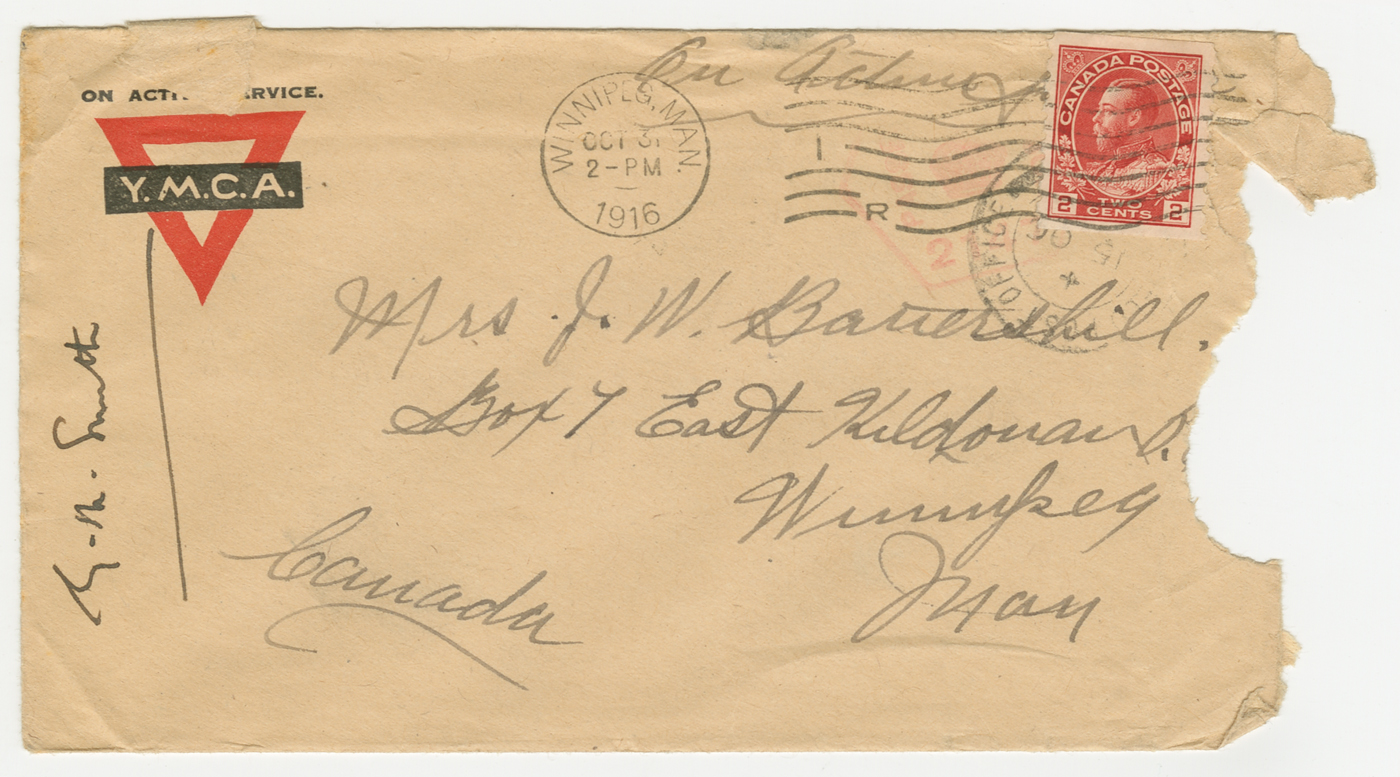 ON ACTI RVICE.
Y.M.C.A.
On Active
WINNIPEG, MAN.
OCT 31
2-PM
1916
I
R
CANADA POSTAGE
2 TWO CENTS 2
OFFICE
2
4
Mrs. J. W. Battershill.
Box 7 East Kildonan P.
Winnipeg
Man
Canada
Smith